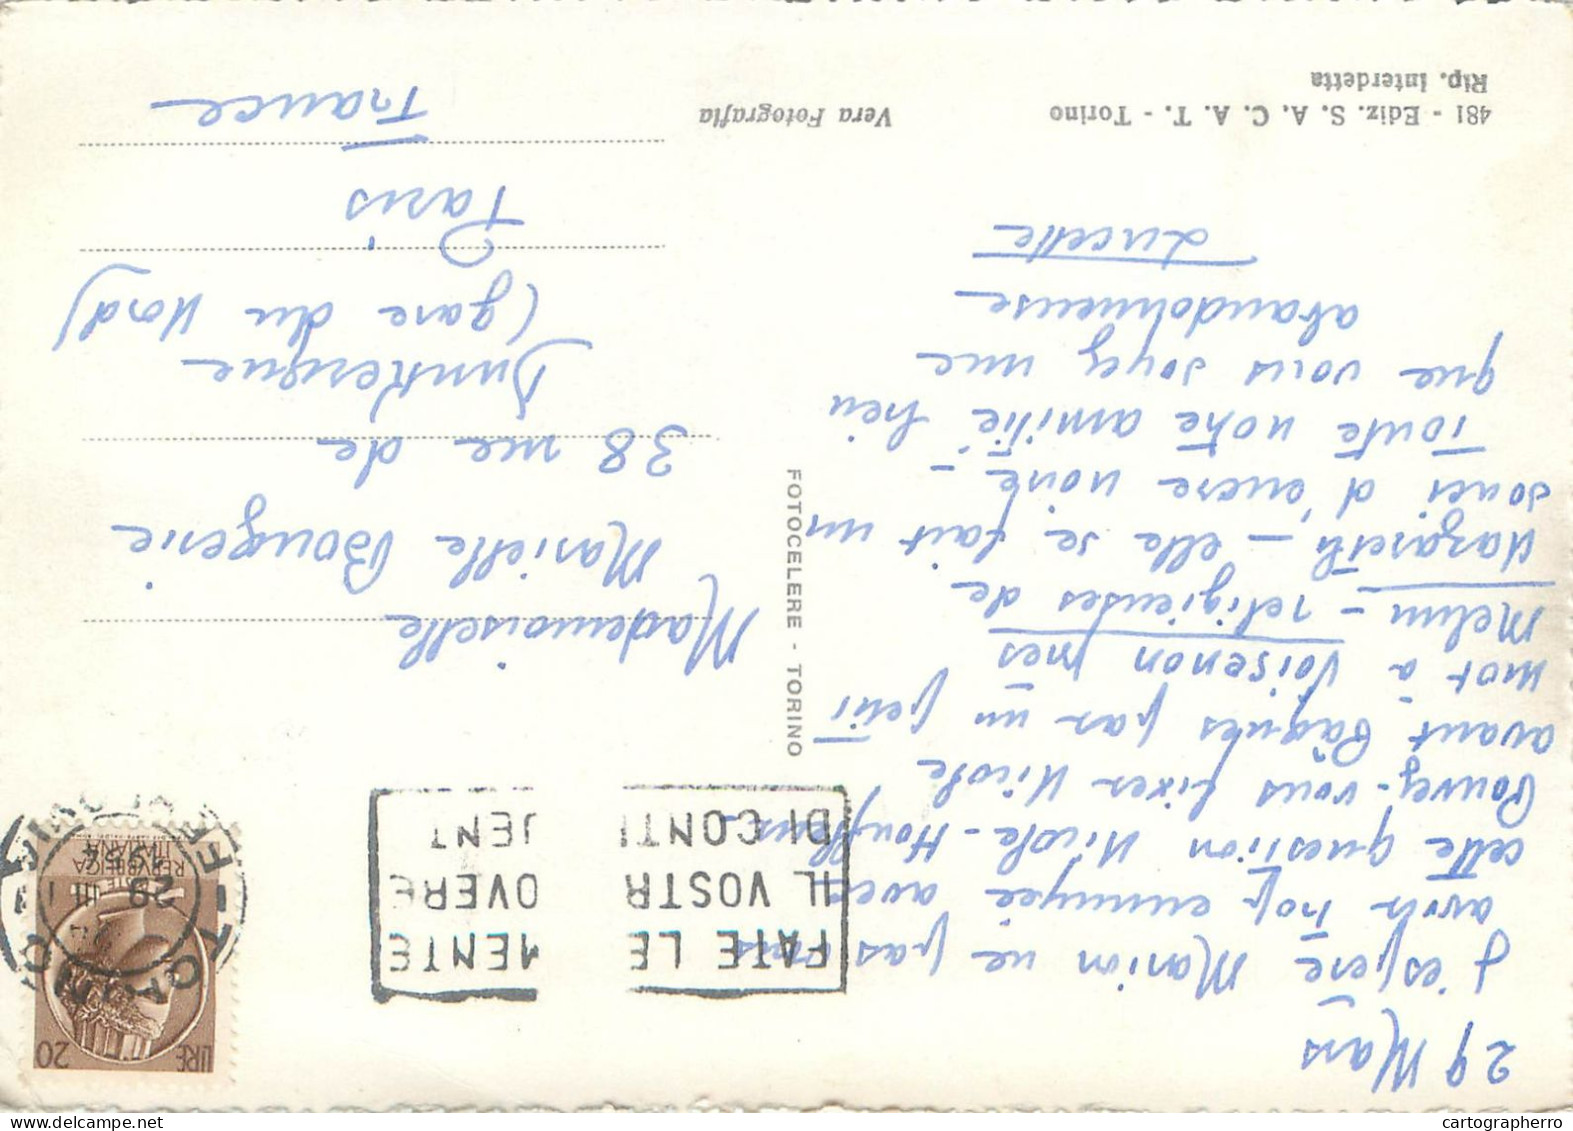 29 Mars
J'espère Marion ne pas vous
avoir trop ennuyée avec
cette question Nicole-Honfleur
Pouvez-vous fixer Nicole
avant Pâques par un petit
mot à Voisenon près
Melun - religieuses de
Nazareth - elle se fait un
souci d'encre noire -
Toute notre amitié, bien
que vous soyez une
abandonneuse
Lucette
481 - Ediz. S. A. C. A. T. - Torino
Rip. Interdetta
Vera Fotografia
FOTOCELERE - TORINO
FATE LE
IL VOSTR
DI CONTI
MENTE
OVERE
JENT
LIRE 20
REPVBBLICA
ITALIANA
TORINO
29 III
1954
Mademoiselle
Marielle Bougerie
38 rue de
Dunkerque
(gare du Nord)
Paris
France
cartographerro